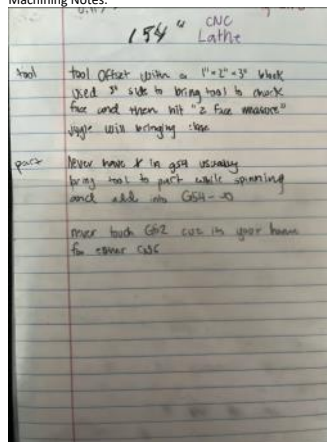 Machining Notes:
154" CNC
Lathe
tool tool offset with a 1"-2"-3" block
used 3" side to bring tool to chuck
face and then hit "z face measure"
jiggle will bringing close
part Never have X in G54 usually
bring tool to part while spinning
and add into G54
never touch G52 cuz its your home
for